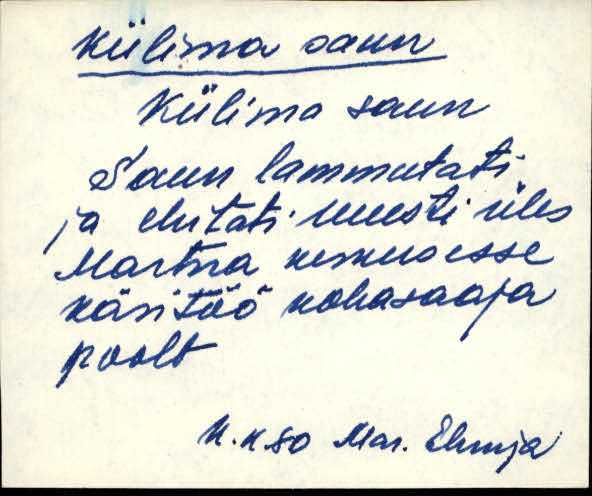 Külima saun
Külima saun
Saun lammutati
ja ehitati uuesti üles
Martna
käsitöö kohasaaja
poolt
Mar.